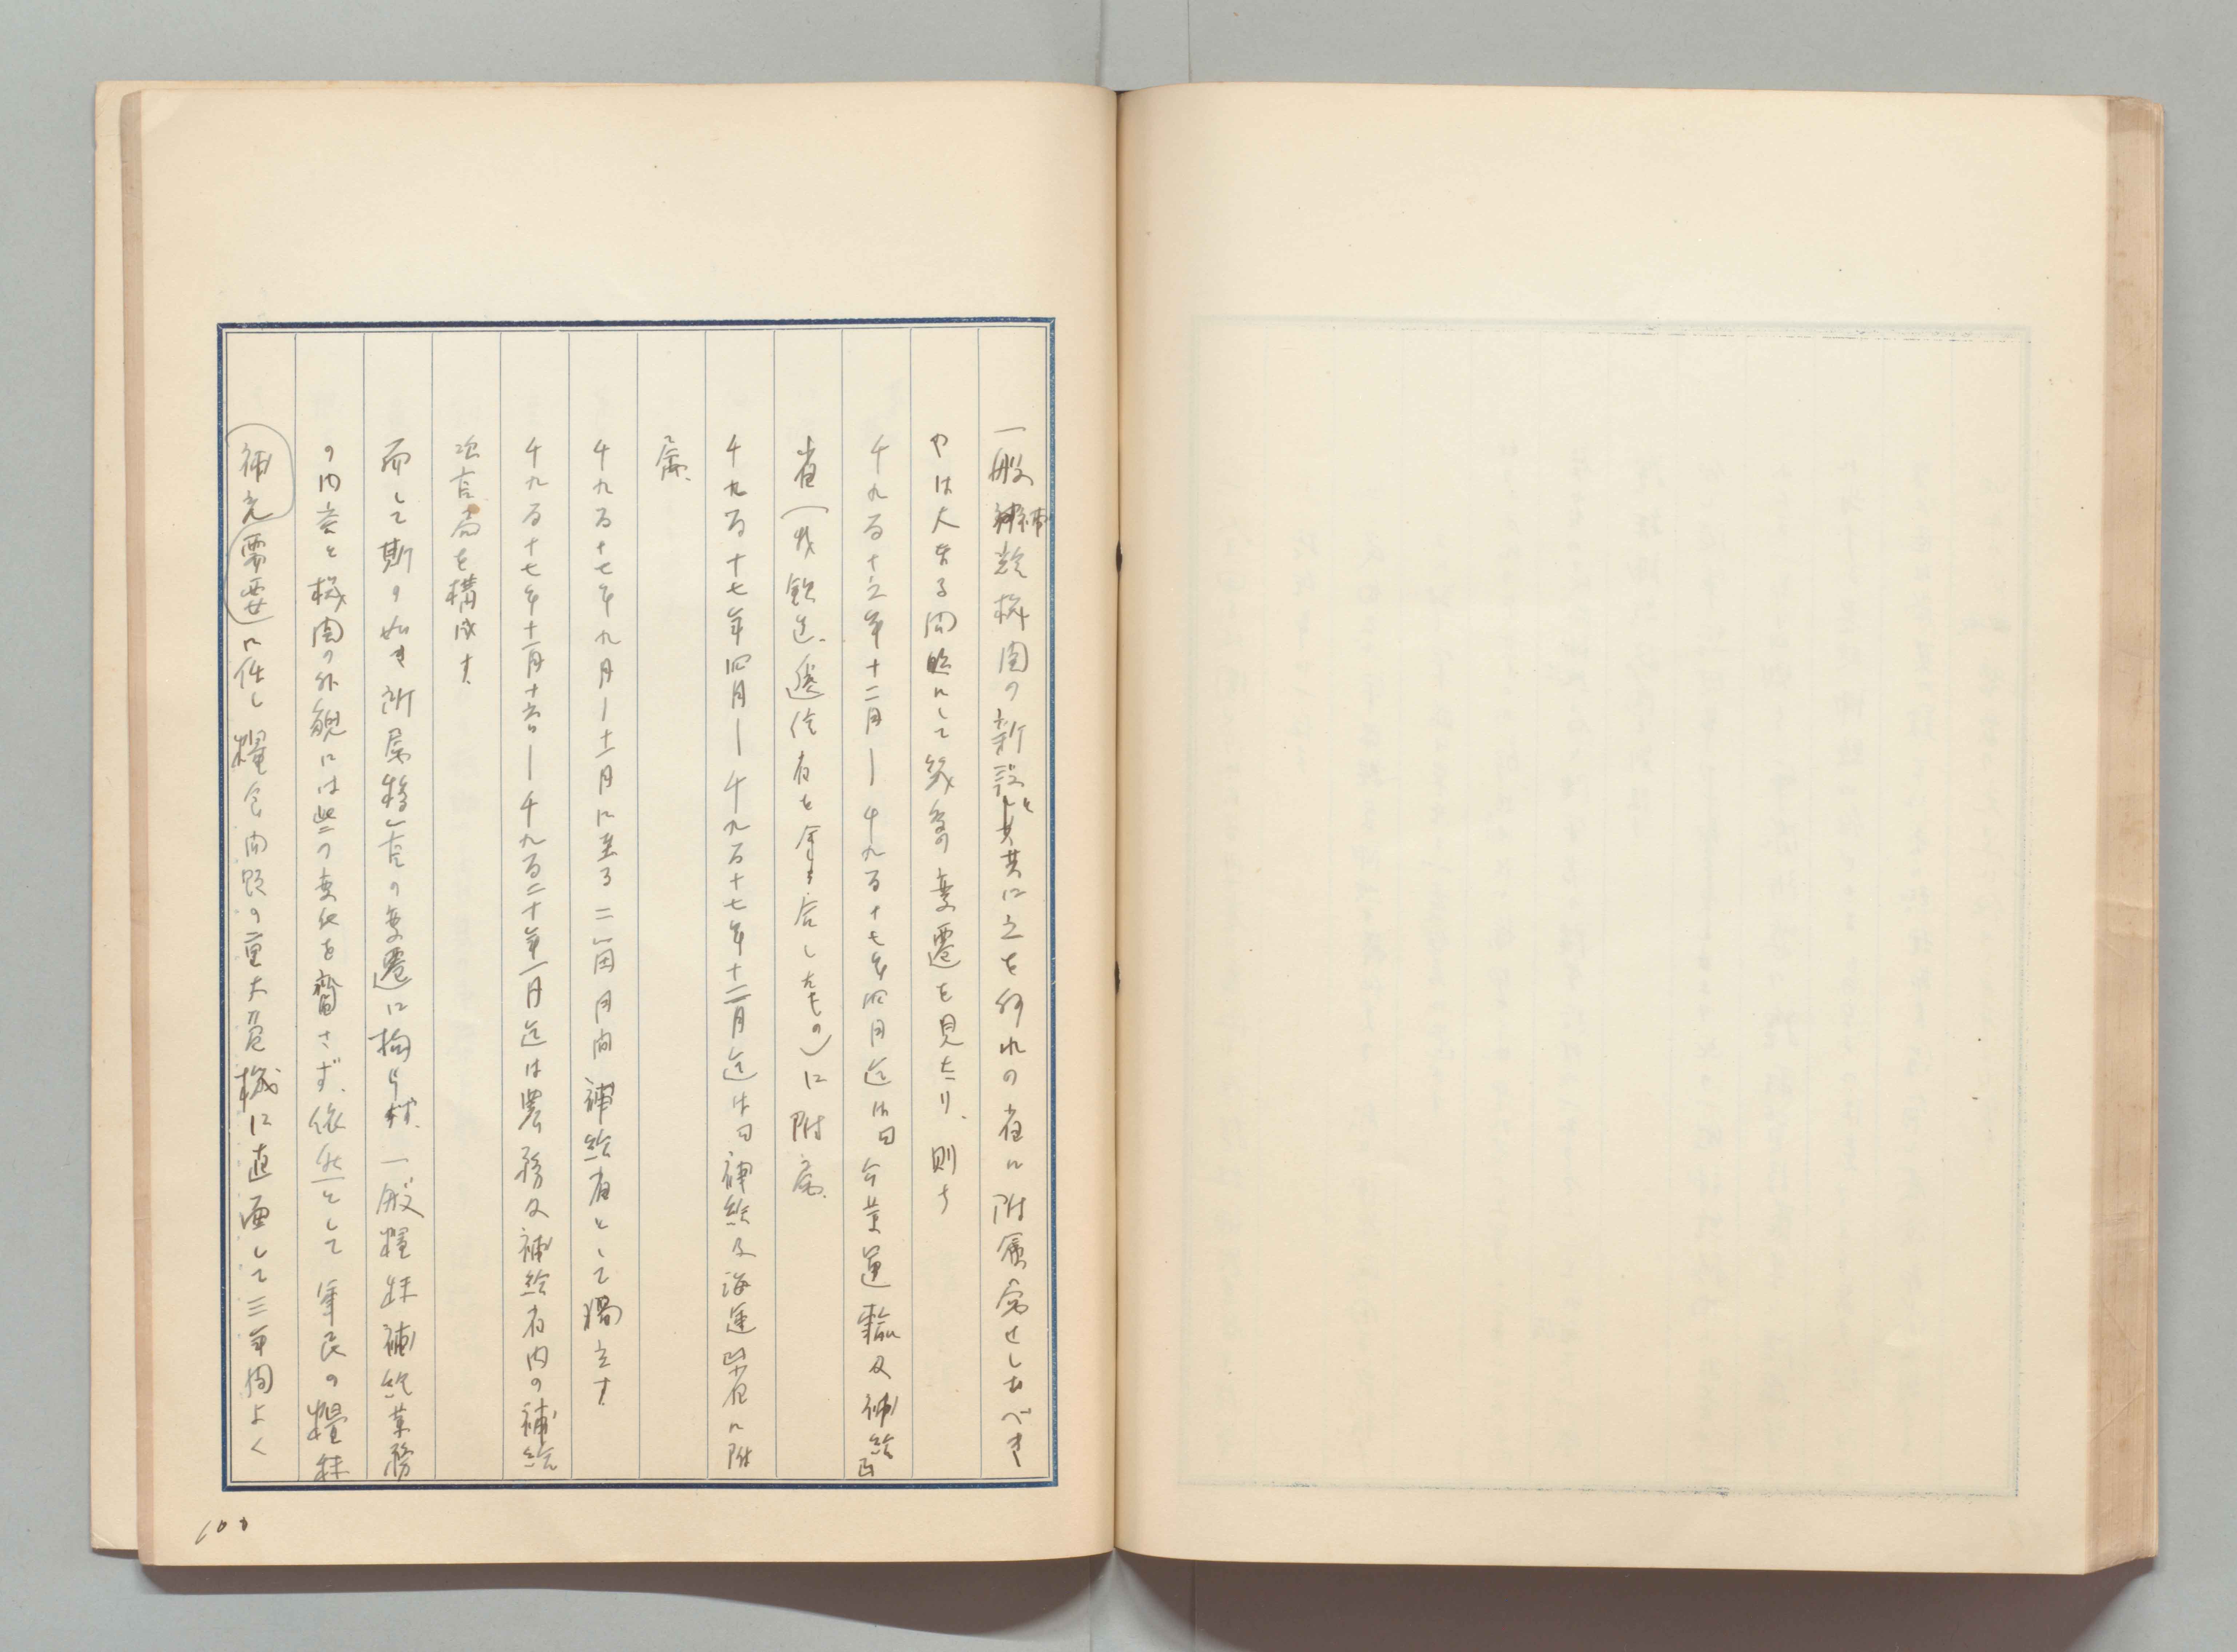 一般補給機関の新設と共に之を何れの省に附属為せしむべき
やは大なる問題にして幾多の変遷を見たり、則ち
千九百十六年十二月—千九百十七年四月迄は曰 令業運輸及補給
省(我鉄道、逓信省を合せしたもの)に附属、
千九百十七年四月—千九百十七年十二月迄は曰補給及海運省に附
属、
千九百十七年九月—十一月に至る二箇月間補給省として独立す、
千九百十七年十一月十六日—千九百二十年一月迄は農務及補給省内の補給
次官局を構成す、
而して斯の如き所属移管の変遷に拘らず、一般糧秣補給業務
の内容と機関の外観には些の変化を齎さず、依然として軍民の糧秣
補充需要に任し糧食問題の重大危機に直面して三年間よく
100